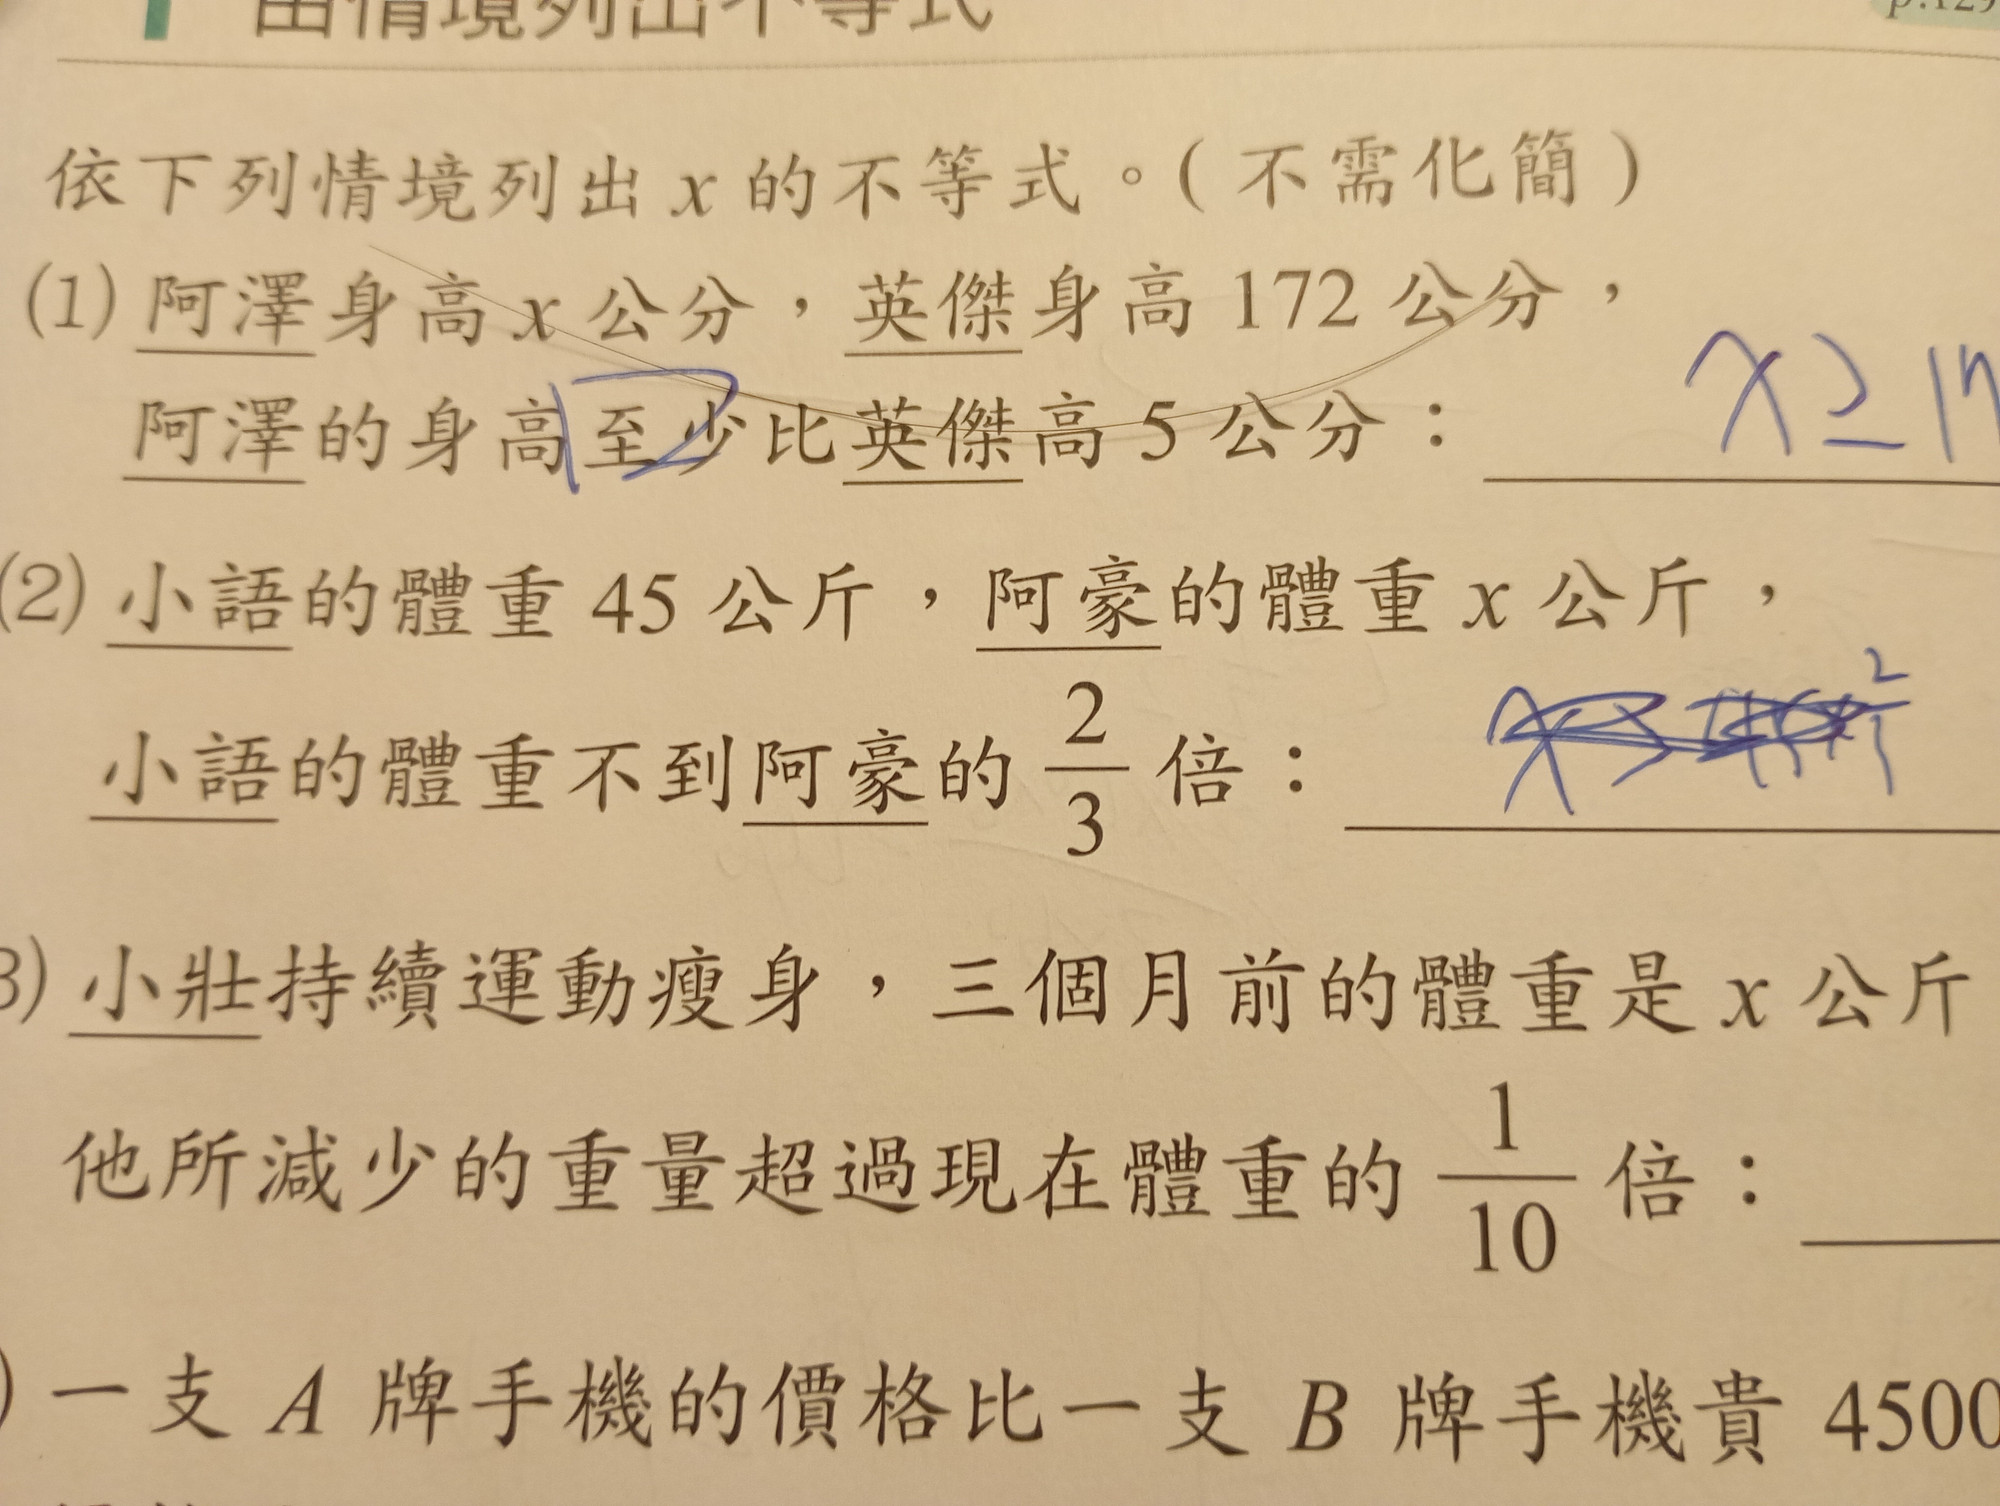 由情境列出不等式
p.129
依下列情境列出 x 的不等式。(不需化簡)
(1) 阿澤身高 x 公分，英傑身高 172 公分，
阿澤的身高至少比英傑高 5 公分： x ≥ 17
(2) 小語的體重 45 公斤，阿豪的體重 x 公斤，
小語的體重不到阿豪的 2/3 倍：
3) 小壯持續運動瘦身，三個月前的體重是 x 公斤
他所減少的重量超過現在體重的 1/10 倍：
) 一支 A 牌手機的價格比一支 B 牌手機貴 4500